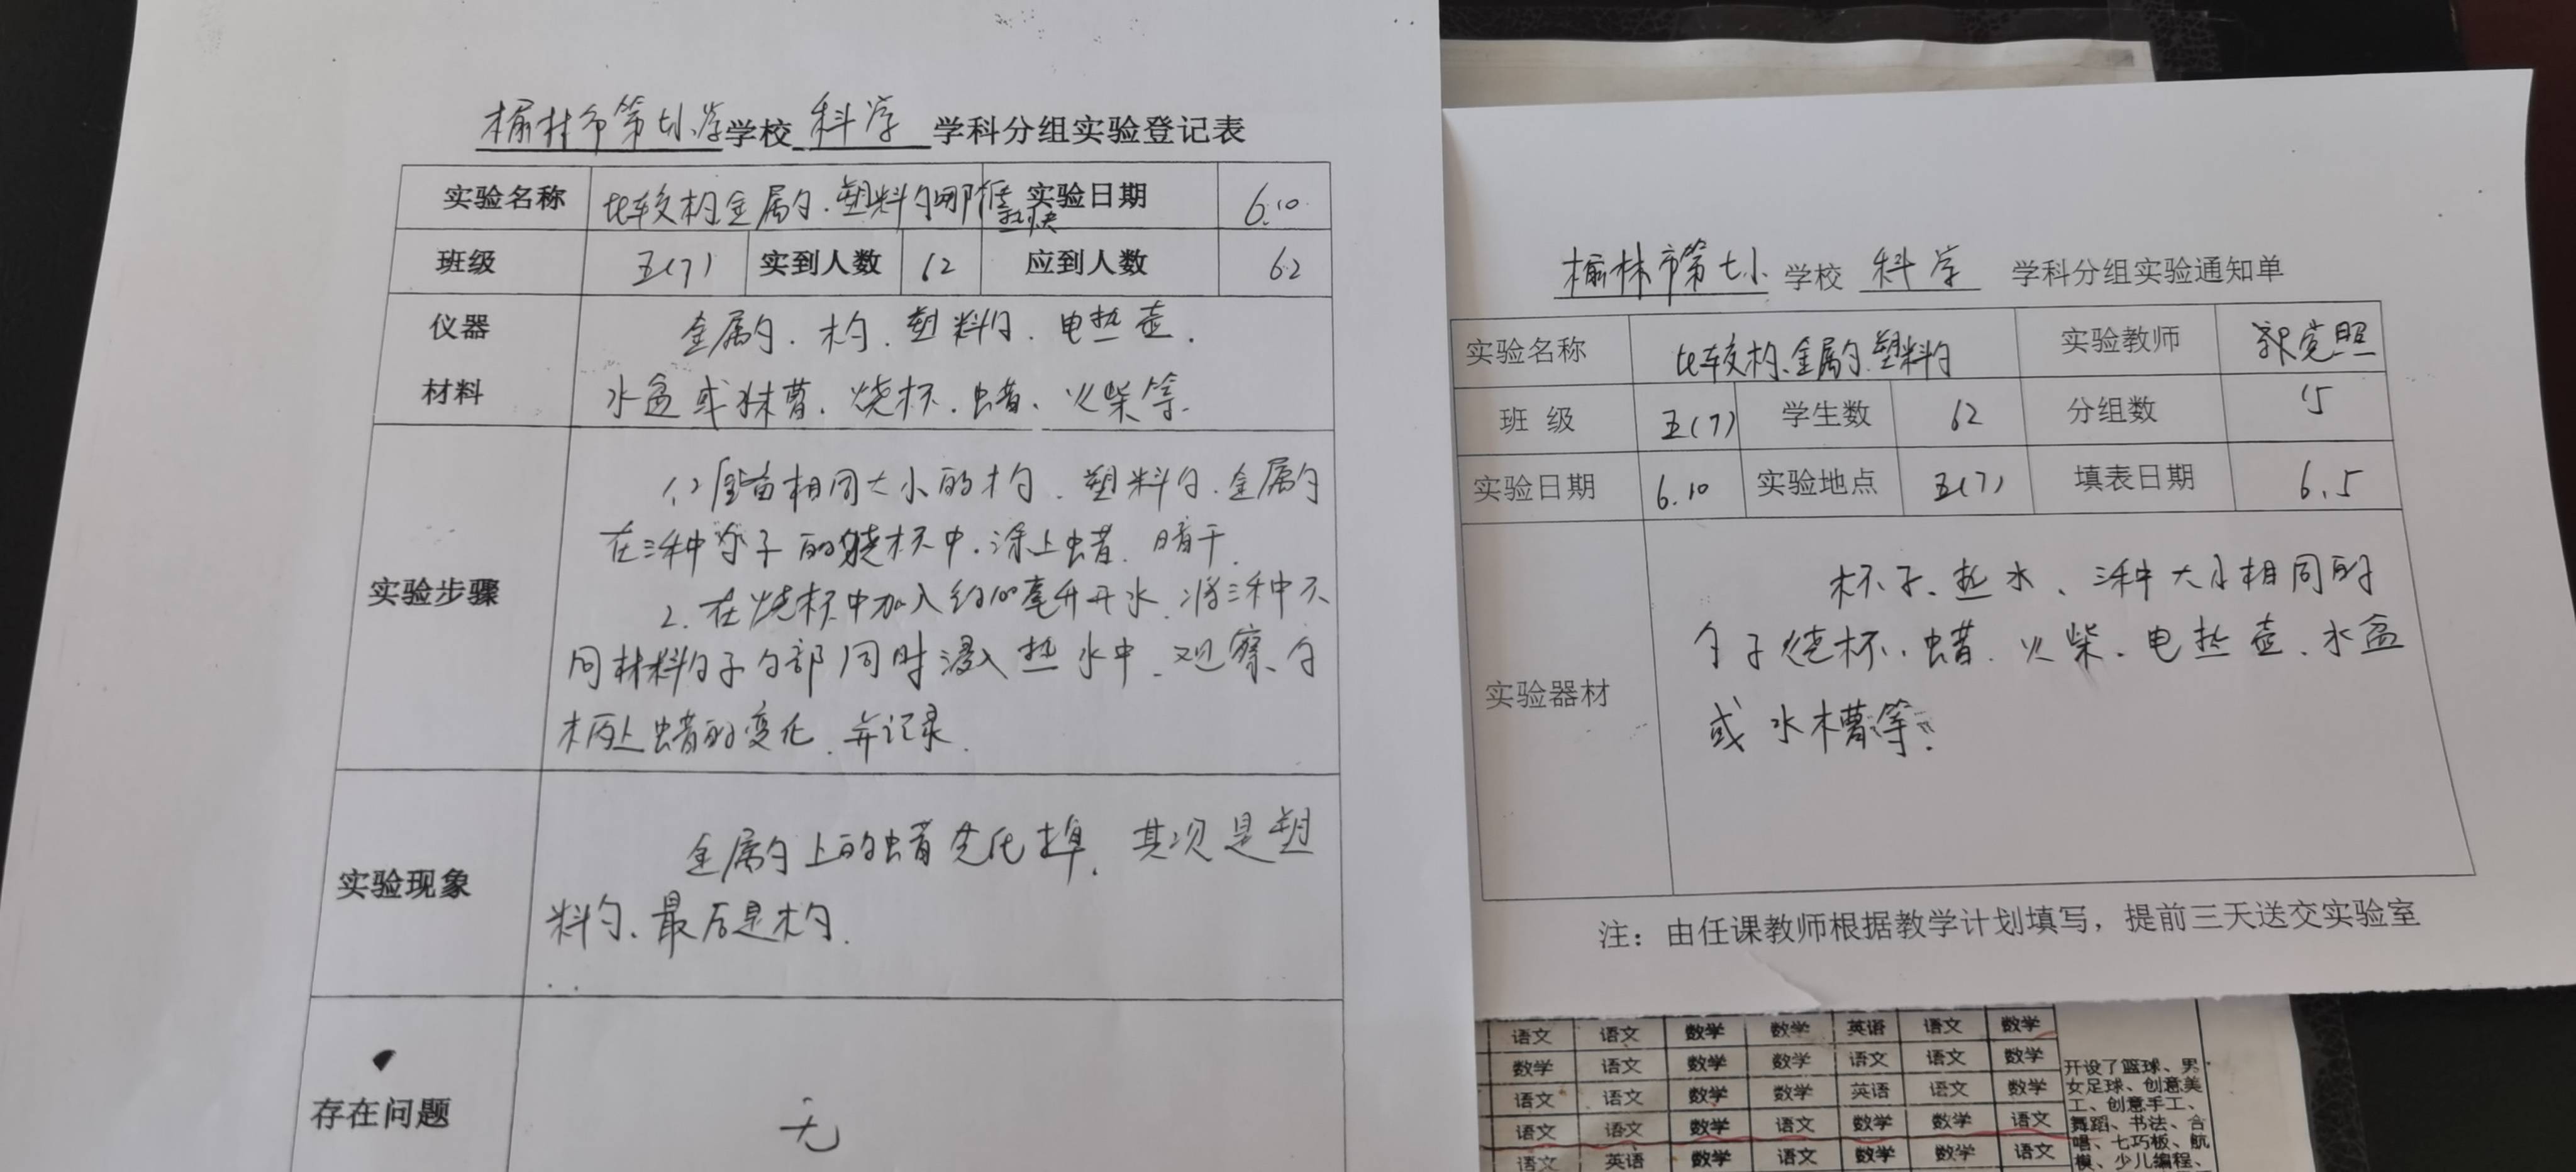 榆林市第七小学学校 科学 学科分组实验登记表
实验名称 比较木勺金属勺、塑料勺哪个传热快 实验日期 6.10
班级 五(7) 实到人数 62 应到人数 62
仪器 金属勺、木勺、塑料勺、电热壶、
材料 水盆或水槽、烧杯、蜡、火柴等、
相同大小的木勺、塑料勺、金属勺
在三种勺子的 中、涂上蜡、晾干、
实验步骤
2、在烧杯中加入约100毫升开水、将三种不
同材料勺子勺部同时浸入热水中、观察、勺
柄上蜡的变化、并记录、
金属勺上的蜡先化掉、其次是塑
实验现象
料勺、最后是木勺、
存在问题 无
榆林市第七小 学校 科学 学科分组实验通知单
实验名称 比较木勺、金属勺、塑料勺 实验教师
班 级 五(7) 学生数 62 分组数 15
实验日期 6.10 实验地点 五(7) 填表日期 6.5
杯子、热水、三种大小相同的
勺子烧杯、蜡、火柴、电热壶、水盆
实验器材
或水槽等、
注：由任课教师根据教学计划填写，提前三天送交实验室
语文 语文 数学 数学 英语 语文 数学
数学 语文 数学 数学 语文 语文 数学
语文 语文 数学 数学 英语 语文 数学
语文 语文 数学 语文 数学 数学 语文
语文 英语 数学 语文 数学 数学 语文
开设了篮球、男
女足球、创意美
工、创意手工、
舞蹈、书法、合
唱、七巧板、航
模、少儿编程、